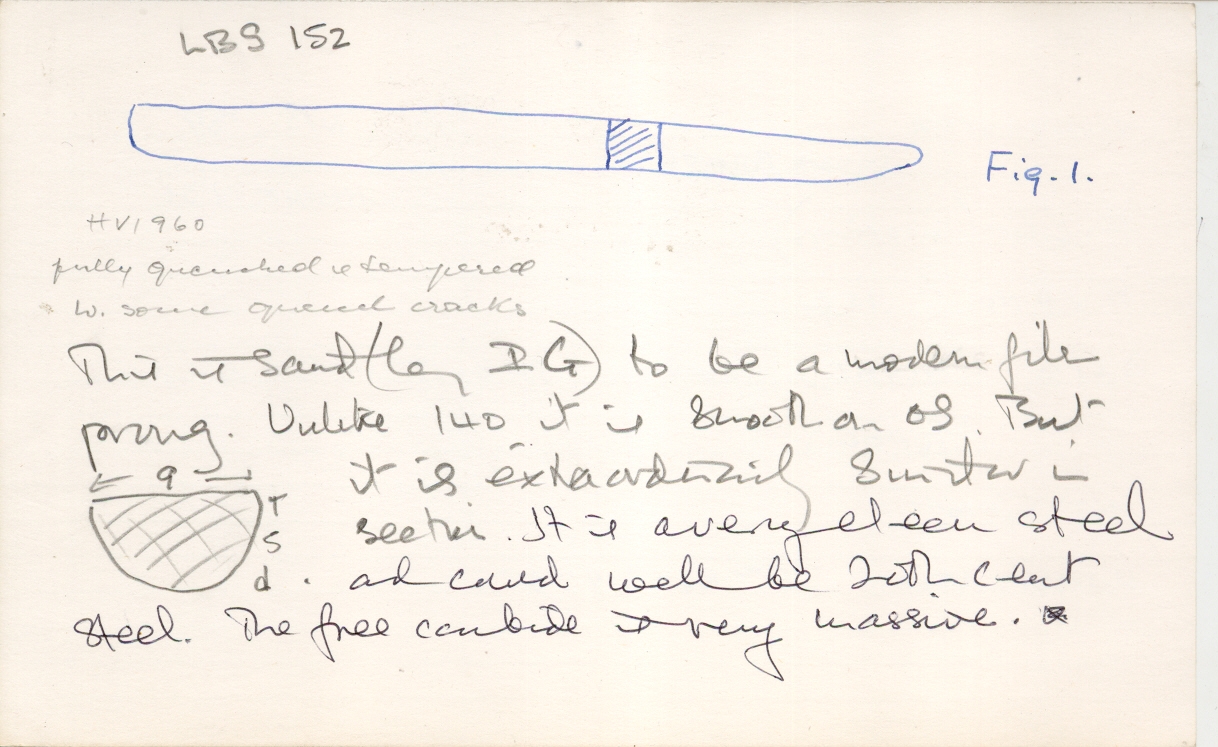 LBS 152
Fig. 1.
HV 1960
fully quenched & tempered
w. some quench cracks
This is said (by IG) to be a modern file
prong. Unlike 140 it is smooth on OS. But
9 it is extraordinarily similar in
5 section. It is a very clean steel
and could well be 20th cent
steel. The free carbide is very massive.